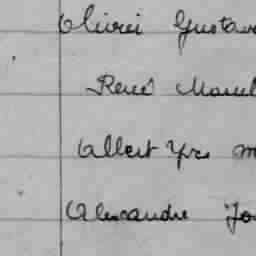 Olivier Gustave
René Marcel
Albert Yves M
Alexandre Jo